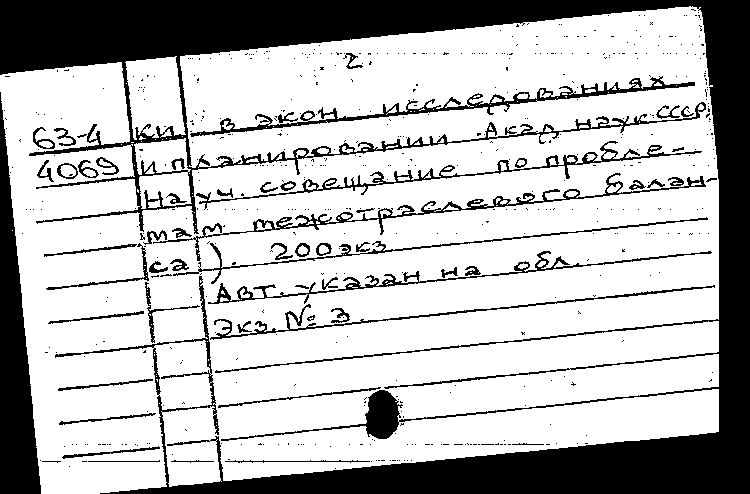 2.
63-4 ки в экон. исследованиях
4069 и планировании. Акад. наук СССР.
Науч. совещание по пробле-
мам межотраслевого балан-
са). 200экз
Авт. указан на обл.
Экз. № 3.